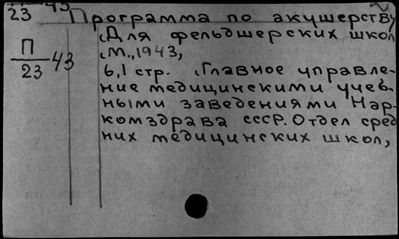 23 43
Программа по акушерству
Для фельдшерских школ
П
23 43
М., 1943,
6,1 стр. Главное управле-
ние медицинскими учеб-
ными заведениями Нар-
комздрава СССР. Отдел сред
них медицинских школ,